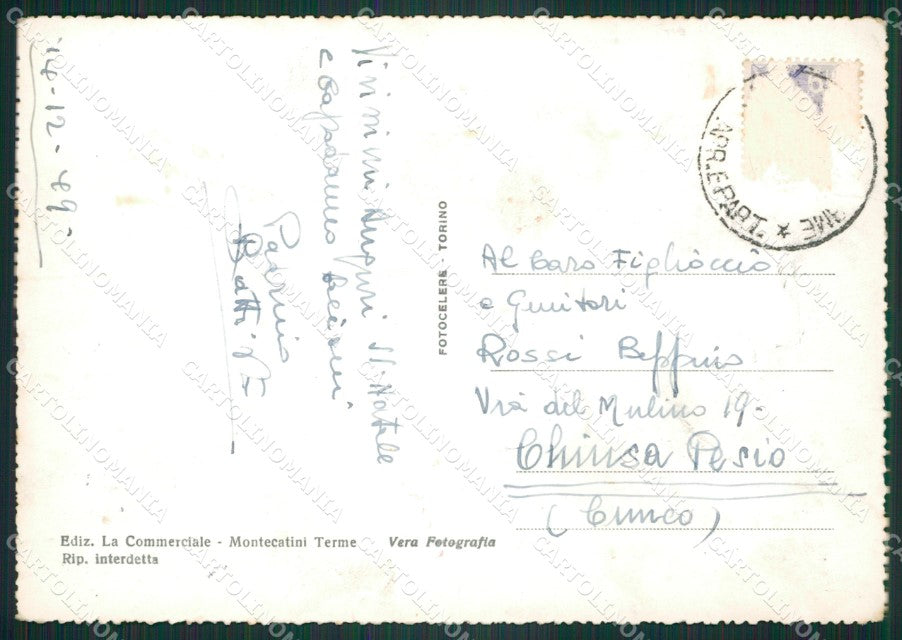 14-12-49-
Vivissimi Auguri S. Natale
e capodanno
Padrino
FOTOCELERE - TORINO
ARR. E PART. ★ ME
Al Caro Figlioccio
e Genitori
Rossi Beppino
Via del Mulino 19-
Chiusa Pesio
(Cuneo)
Ediz. La Commerciale - Montecatini Terme Vera Fotografia
Rip. interdetta
CARTOLINOMANIA